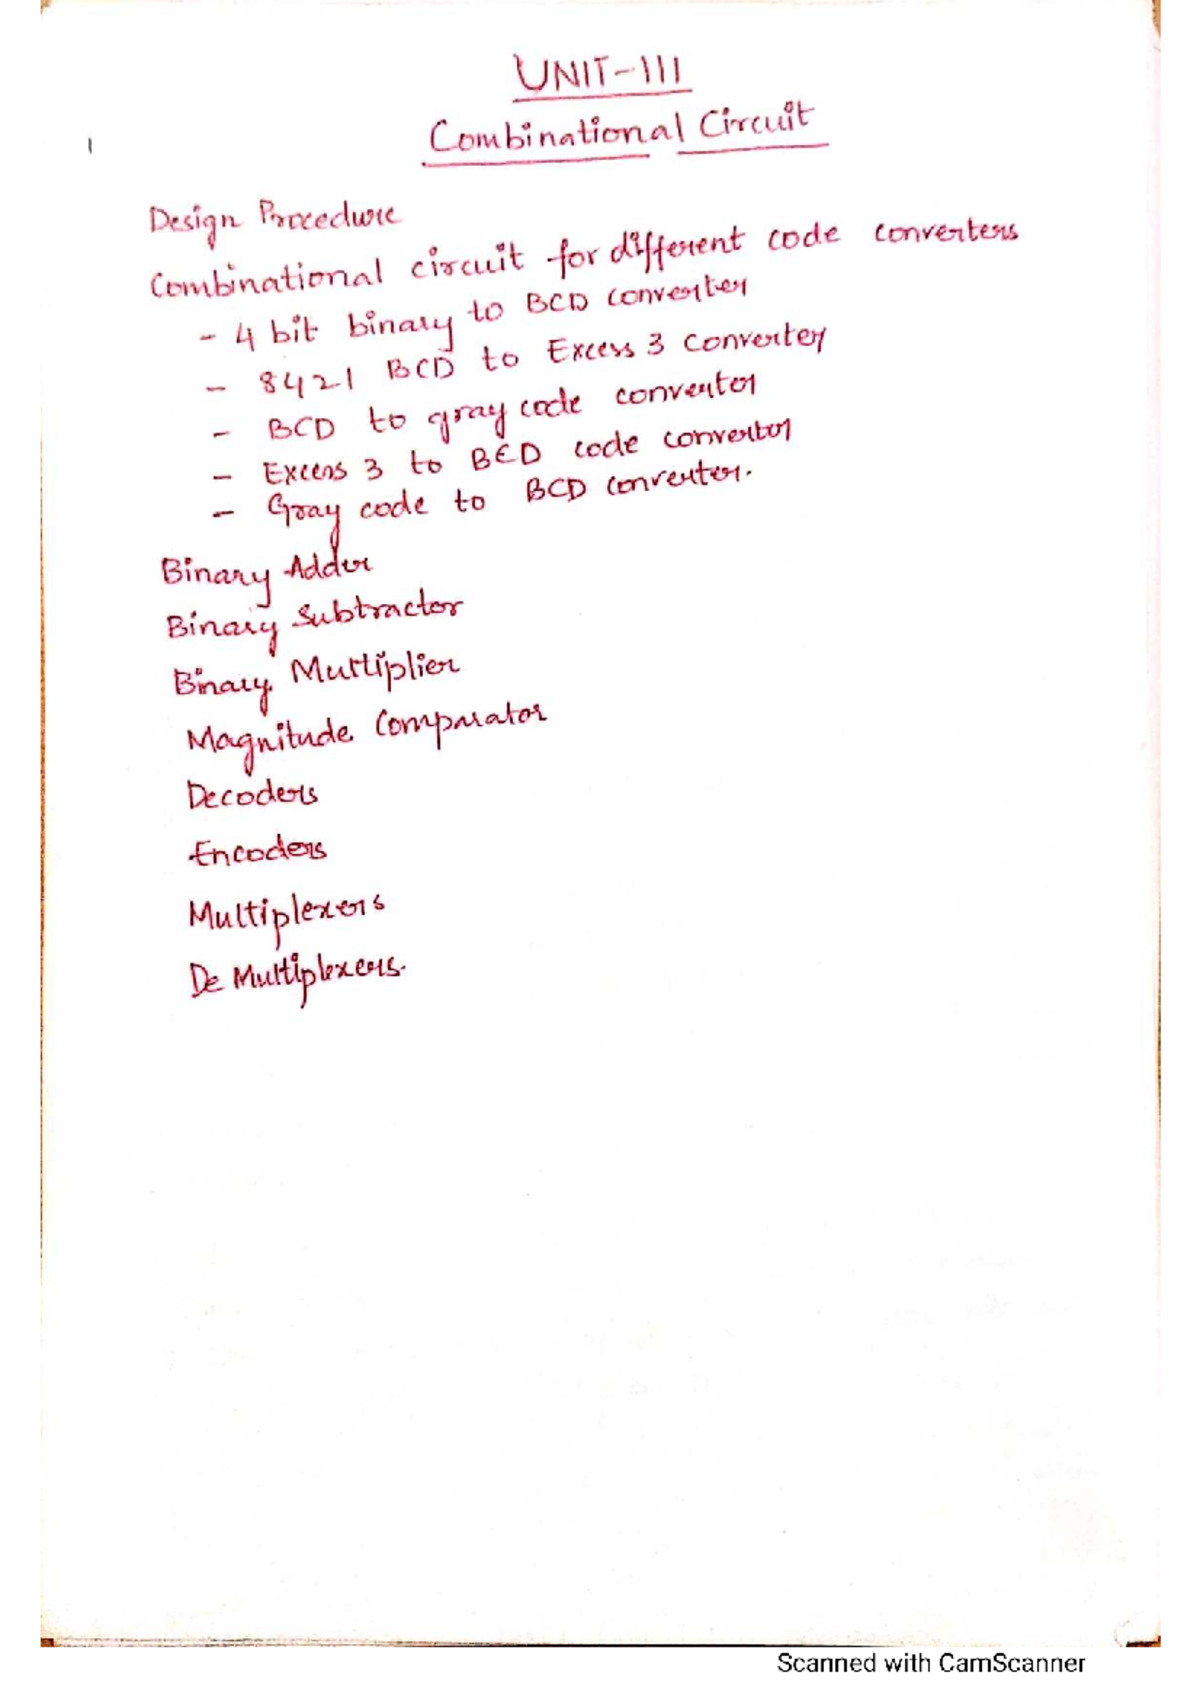 UNIT-III
Combinational Circuit
Design Procedure
Combinational circuit for different code converters
- 4 bit binary to BCD converter
- 8421 BCD to Excess 3 converter
- BCD to gray code convertor
- Excess 3 to BCD code convertor
- Gray code to BCD converter.
Binary Adder
Binary Subtractor
Binary Multiplier
Magnitude Comparator
Decoders
Encoders
Multiplexers
De Multiplexers.
Scanned with CamScanner